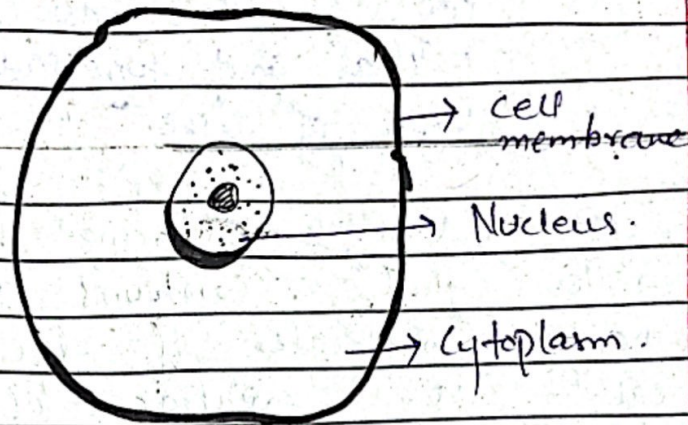 cell
membrane
Nucleus.
Cytoplasm.